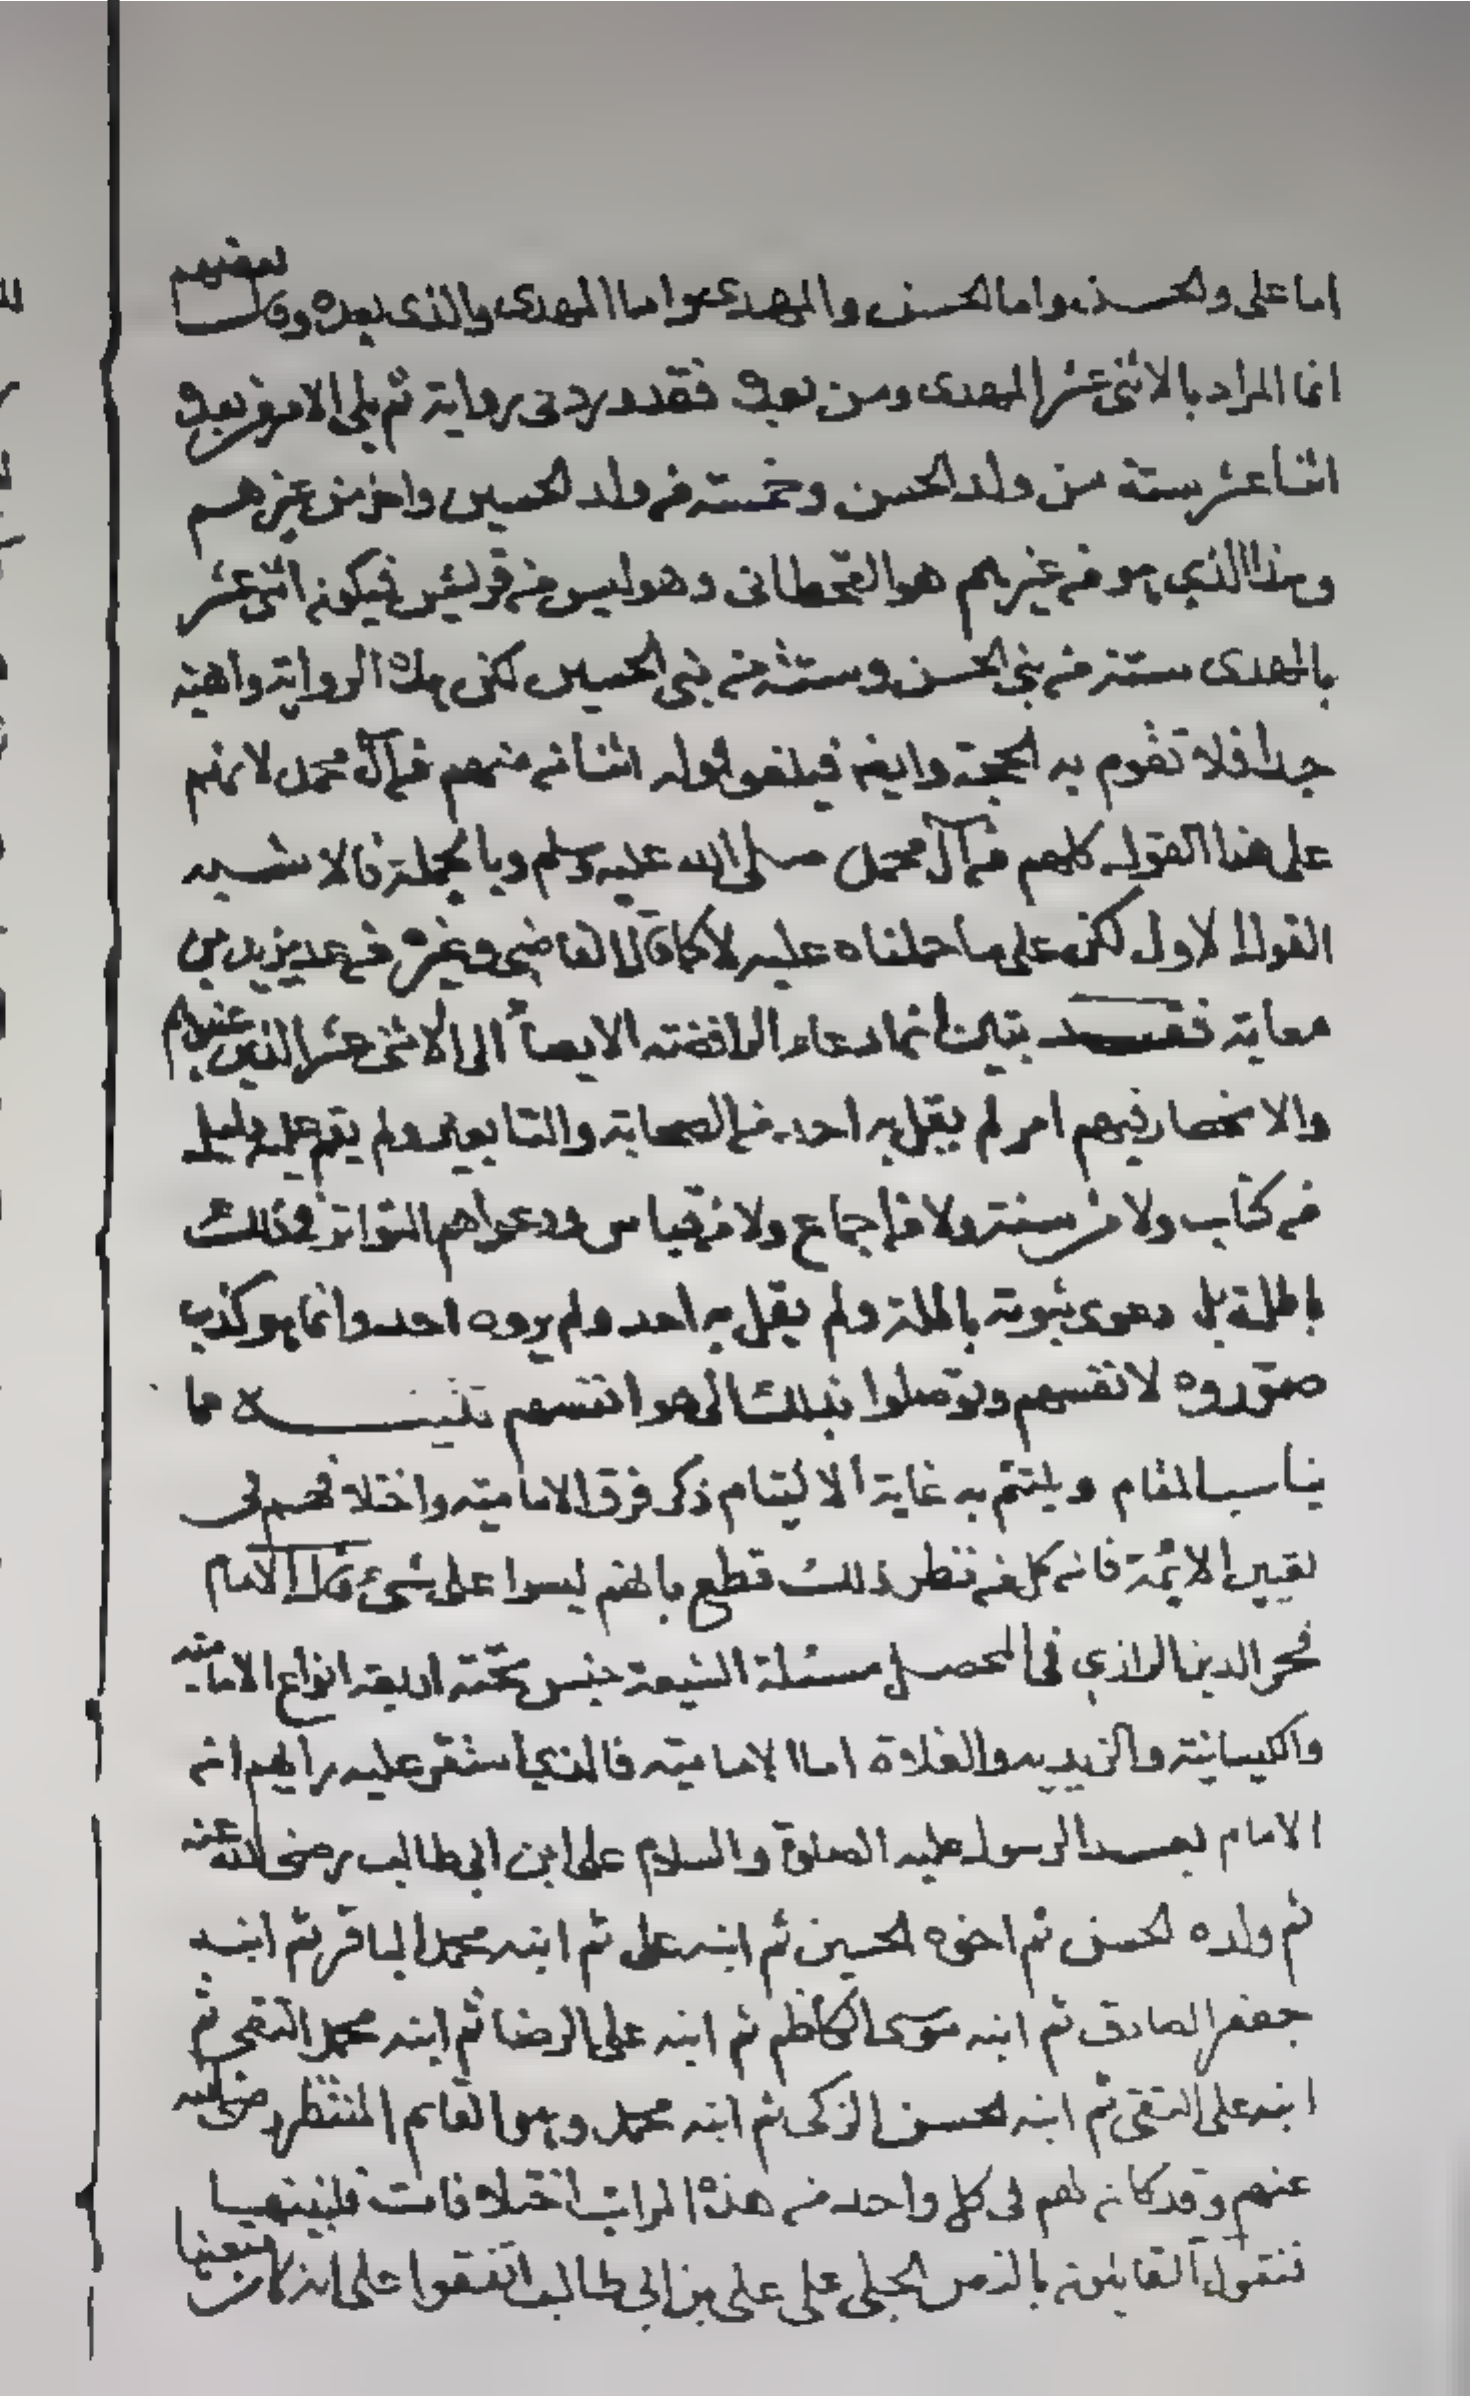 اما على والحسن واما الحسن والمهدى واما المهدى والذى بعده وقال بعضهم
انما المراد بالاثنى عشر المهدى ومن بعده فقد ورد فى رواية ثم يلى الامر من بعده
اثنا عشر ستة من ولد الحسن وخمسة من ولد الحسين واخر من غيرهم
وهذا الذي هو من غيرهم هو القحطانى وهو ليس من قريش فيكون اثنى عشر
بالمهدى ستة من بني الحسن وستة من بنى الحسين لكن هذه الرواية واهية
جدا فلا تقوم به الحجة وايضا فيلغو قوله اثنان منهم من آل محمد لانهم
على هذا القول كلهم من آل محمد صلى الله عليه وسلم وبالجملة فالاشبه
القول الاول لكن على ما حملناه عليه لا كما قال القاضي وغيره من عد يزيد بن
معاية فقد تبين انما دعاء الرافضة الايصأ الى الاثنى عشر الذين عينوهم
والانحصار فيهم امر لم يقل به احد من الصحابة والتابعين ولم يقم عليه دليل
من كتاب ولا من سنة ولا من اجماع ولا من قياس ودعواهم التواتر فى ذلك
باطلة بل دعوى ثبوته باطلة ولم يقل به احد ولم يروه احد وانما هو كذب
صوروه لانفسهم وتوصلوا بذلك الى هوا انفسهم تنبيه مما
يناسب المقام ويلتئم به غاية الالتيام ذكر فرق الامامية واختلافهم فى
تعيين الائمة فان كل من نظر ذلك قطع بانهم ليسوا على شيئ قال الامام
فخر الدين الرازي فى المحصل مسئلة الشيعة جنس تحته اربعة انواع الامامية
والكيسانية والزيديه والغلاة اما الامامية فالذي استقر عليه رايهم ان
الامام بعد الرسول عليه الصلوة والسلام على ابن ابى طالب رضى الله عنه
ثم ولده الحسن ثم اخوه الحسين ثم ابنه على ثم ابنه محمد الباقر ثم ابنه
جعفر الصادق ثم ابنه موسى الكاظم ثم ابنه على الرضا ثم ابنه محمد التقى ثم
ابنه على النقى ثم ابنه الحسن الزكى ثم ابنه محمد وهو القايم المنتظر رضى الله
عنهم وقد كان لهم فى كل واحد من هذه المراتب اختلافات فلنبينها
فنقول القايلون بالنص الجلى على على بن ابى طالب اتفقوا على انه كان متعينا